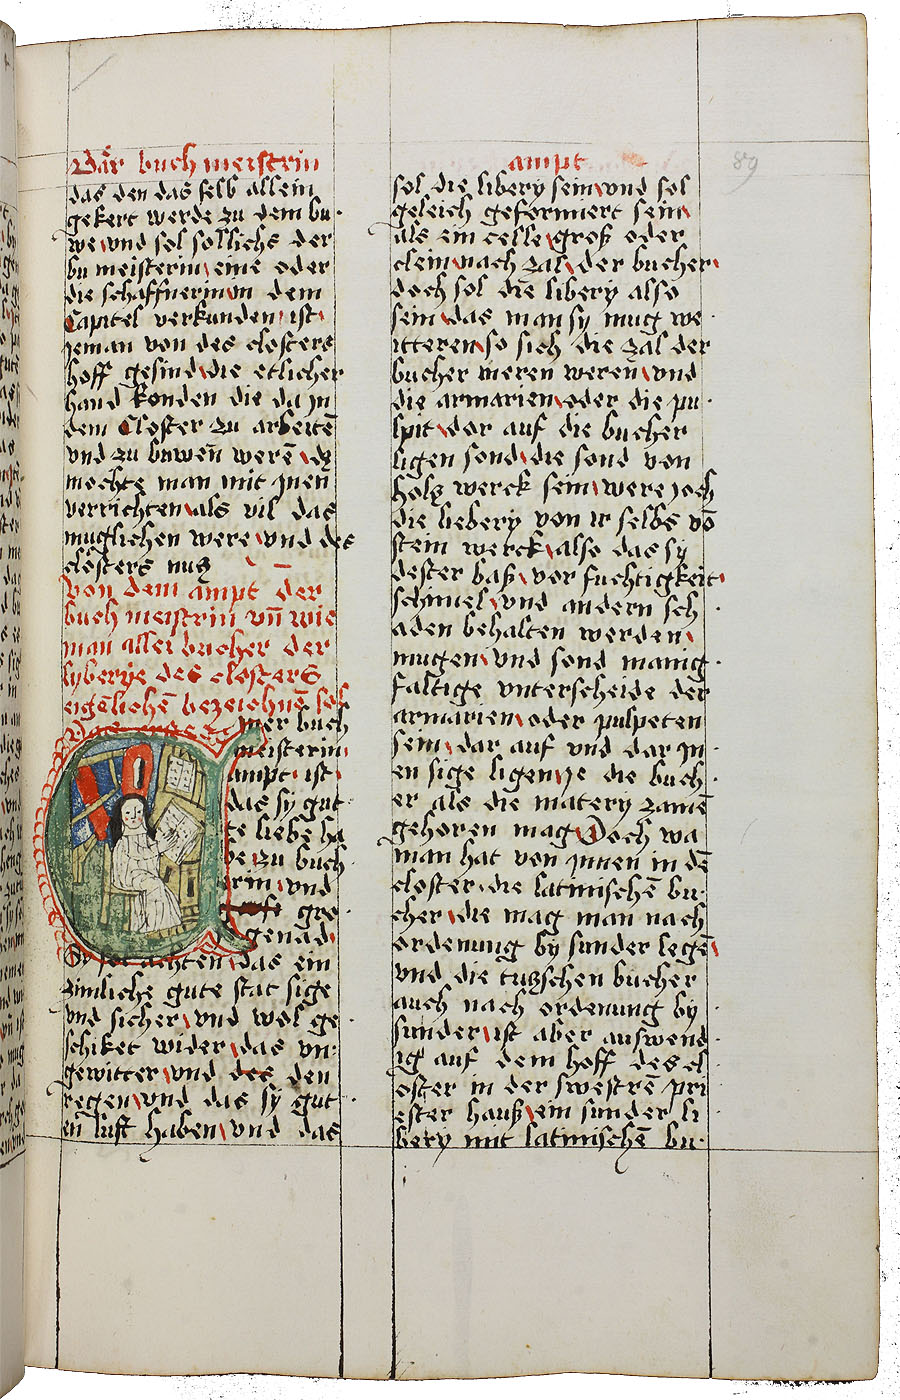 Där buch meistrin
das den das selb allein
gekert werde zu dem bu
we und sol sollichs der
bu meisterin eine oder
die schaffnerinn dem
Capitel verkunden ist
jeman von des closters
hoff gesind die etlicher
hand konden die da jn
dem Closter zu arbeitē
vnd zu buwen̄ werē dz
mochte man mit jnen
verrichten als vil das
muglichen were vnd des
closters nuz
Von dem ampt der
buch meistrin vn̄ wie
man aller bucher der
lyberye des closters
eigēlichē bezeichnē sol
mer buch
meisterin
ampt ist
das sy gut
te liebe ha
be zu buch
ern vnd
gro
genad
achten das ein
zimliche gute stat sige
vnd sicher vnd wol ge
schiket wider das vn
gewitter vnd des den
regen vnd das sy gut
en luft haben vnd das
ampt
89
sol die libery sein vnd sol
geleich geformiert sein
als ein celle groß oder
clein nach zal der bucher
doch sol die libery also
sein das man sy mug we
itteren so sich die zal der
bucher meren weren vnd
die armarien oder die pu
lpit dar auf die bucher
ligen sond die sond von
holz werck sein were joch
die liebery von ir selbs vō
stein werck also das sy
dester baß vor fuchtigkeit
schimel vnd andern sch
aden behalten werden
mugen vnd sond manig
faltige vnterscheide der
armarien oder pulpeten
sein dar auf vnd dar jn
en sige ligen je die buch
er als die matery zamē
gehoren mag Doch wa
man hat von jnnen in dē
closter die latinischē bu
cher die mag man nach
ordenung by sunder legē
vnd die tutzschen bucher
auch nach ordenung by
sunder ist aber auswend
ig auf dem hoff des cl
oster in der swestrē pri
ester hauß ein sunder li
bery mit latinischē bu